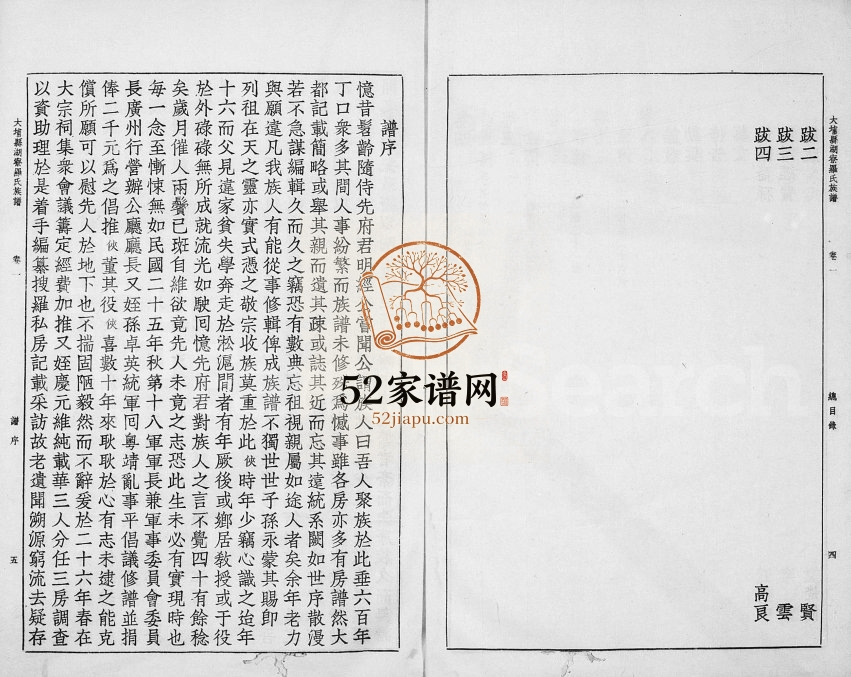 大埔縣湖寮羅氏族譜
卷一
總目錄
四
跋二
賢
跋三
雲
跋四
高良
譜序
憶昔髫齡隨侍先府君明經公嘗聞公語族人曰吾人聚族於此垂六百年
丁口衆多其間人事紛繁而族譜未修殊爲憾事雖各房亦多有房譜然大
都記載簡略或舉其親而遺其疎或誌其近而忘其遠統系闕如世序散漫
若不急謀編輯久而久之竊恐有數典忘祖視親屬如途人者矣余年老力
與願違凡我族人有能從事修輯俾成族譜不獨世世子孫永蒙其賜卽
列祖在天之靈亦實式憑之敬宗收族莫重於此俠時年少竊心識之迨年
十六而父見違家貧失學奔走於淞滬間者有年厥後或鄉居敎授或于役
於外碌碌無所成就流光如駛囘憶先府君對族人之言不覺四十有餘稔
矣歲月催人兩鬢已斑自維欲竟先人未竟之志恐此生未必有實現時也
每一念至慚悚無如民國二十五年秋第十八軍軍長兼軍事委員會委員
長廣州行營辦公廳廳長又姪孫卓英統軍囘粵靖亂事平倡議修譜並捐
俸二千元爲之倡推俠董其役俠喜數十年來耿耿於心有志未逮之能克
償所願可以慰先人於地下也不揣固陋毅然而不辭爰於二十六年春在
大宗祠集衆會議籌定經費加推又姪慶元維純載華三人分任三房調查
以資助理於是着手編纂搜羅私房記載采訪故老遺聞溯源窮流去疑存
大埔縣湖寮羅氏族譜
卷一
譜序
五
52家谱网
52jiapu.com